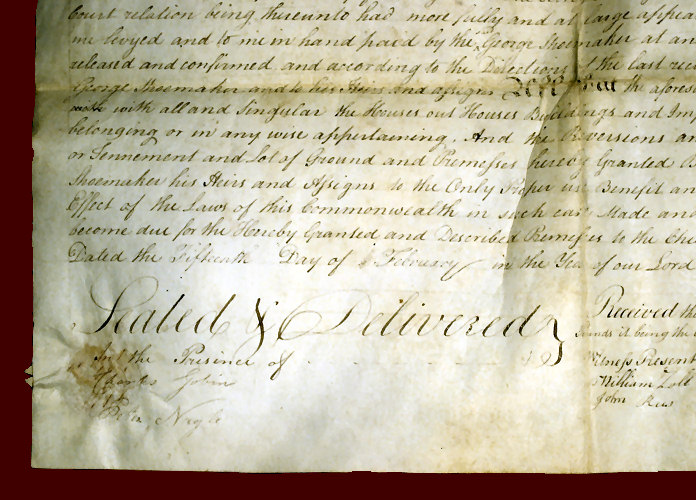 Court relation being thereunto had more fully and at large appear
me levyed and to me in hand paid by the George Shoemaker at an
released and confirmed and according to the Directions of the last rec
George Shoemaker and to his Heirs and assigns All that the afores
with all and Singular the Houses out Houses Buildings and Im
belonging or in any wise appertaining. And the Reversions an
or Tennement and Lot of Ground and Premesses hereby Granted
Shoemaker his Heirs and Assigns to the Only Proper use Benefit an
Effect of the Laws of this Commonwealth in such case Made and
become due for the Hereby Granted and Described Remesses to the Chie
Dated the Fifteenth Day of February in the Year of our Lord
Sealed & Delivered
In the Presence of
John
Peter Nagle
Received the
being the
Witness Present
William
John